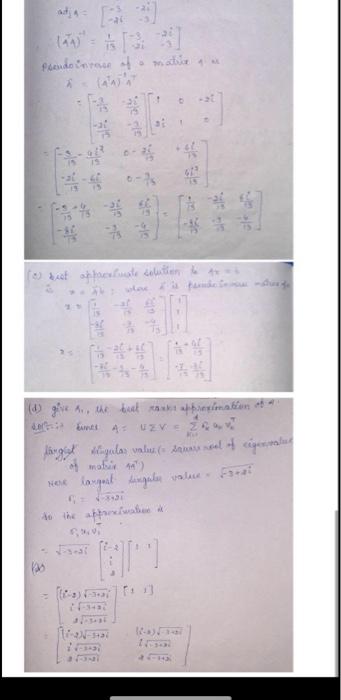 adj A = [-3 -2i
-2i -3]
(ĀᵀA)⁻¹ = 1/13 [-3 -2i
-2i -3]
Pseudoinverse of a matrix A is
Â = (ĀᵀA)⁻¹Āᵀ
= [-3/13 -2i/13
-2i/13 -3/13] [1 0 -2i
2i 1 0]
= [-3/13 - 4i²/13 0-2i/13 +6i/13
-2i/13 - 6i/13 0-3/13 4i²/13]
= [-3+4/13 -2i/13 6i/13
-8i/13 -3/13 -4/13] = [1/13 -2i/13 6i/13
-8i/13 -3/13 -4/13]
(c) best approximate solution to Ax = b
is x = Âb ; where Â is pseudo inverse matrix of
x = [1/13 -2i/13 6i/13
-8i/13 -3/13 -4/13] [1
1
1]
x = [1/13 -2i+6i/13
-8i/13 -3/13 -4/13] = [1/13 + 4i/13
-7/13 -8i/13]
(d) give A₁, the best rank1 approximation of A.
Solⁿ:- since A = UΣVᵀ =
largest singular value (= square root of eigenvalue
of matrix AAᵀ)
Here largest singular value = √-3+2i
σ₁ = √-3+2i
So the approximation is
σ₁u₁v₁ᵀ
= √-3+2i [i-2
i
2] [1 1]
= [(i-2)√-3+2i
i√-3+2i
2√-3+2i] [1 1]
= [(i-2)√-3+2i (i-2)√-3+2i
i√-3+2i i√-3+2i
2√-3+2i 2√-3+2i]